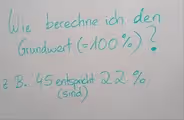 Wie berechne ich den
Grundwert (=100%)?
z B. 45 entspricht 22%
(sind)